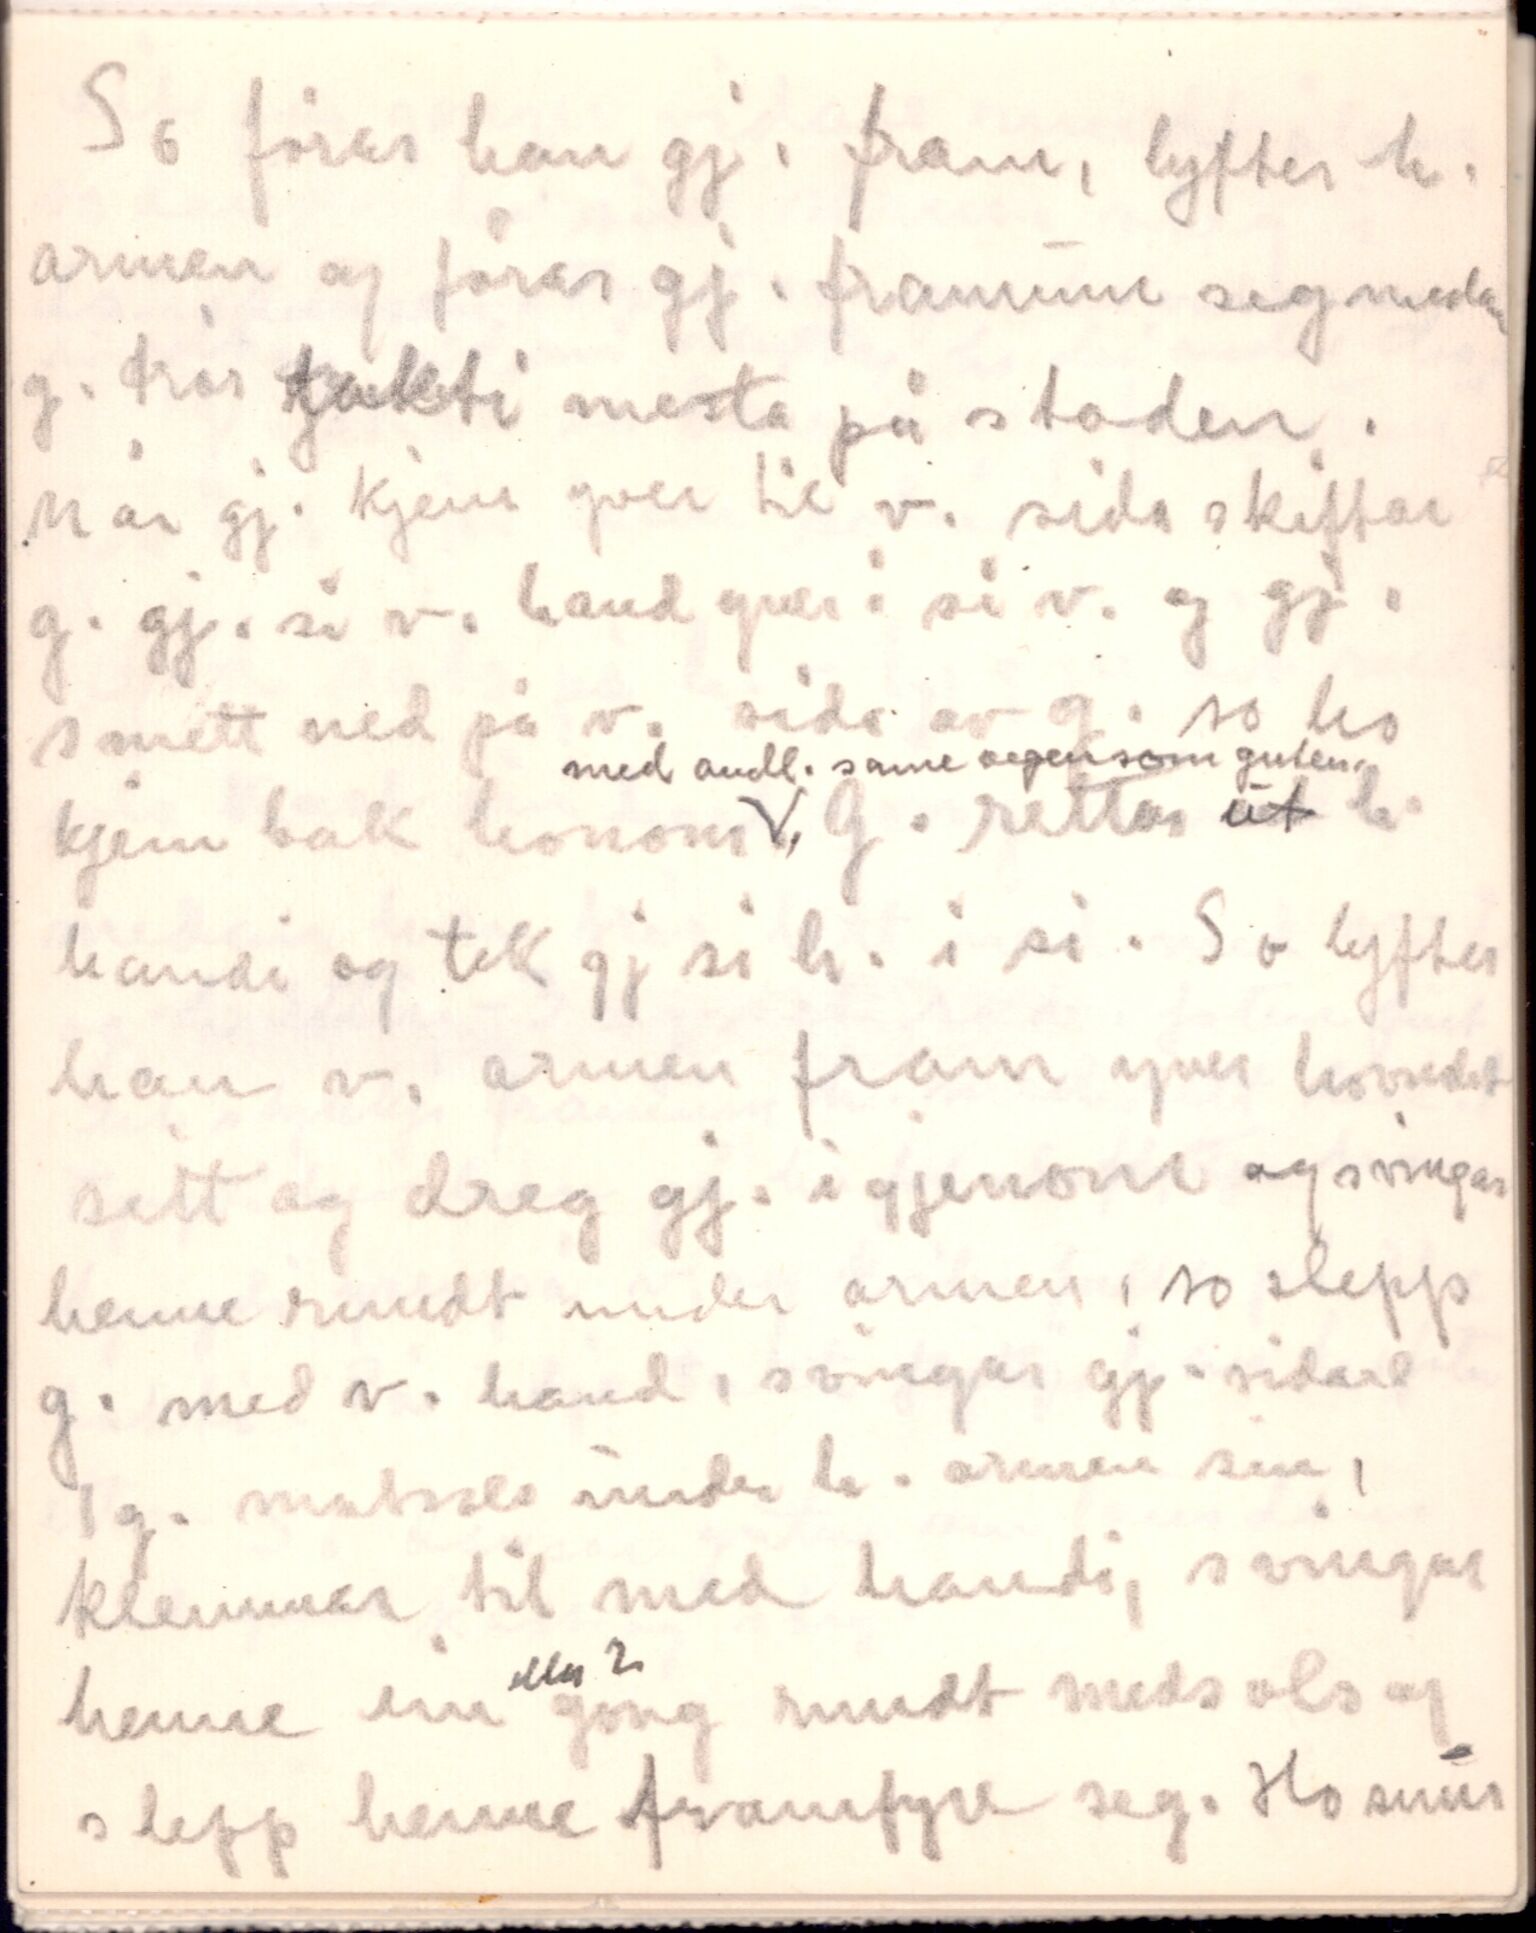 So fører han gj. fram, lyfter h.
armen og fører gj. framum seg medan
g. trør takti mesta på staden.
Når gj. kjem yver til v. sida skiftar
g. gj. si v. hand yver i si v. og gj.
smett ned på v. sida av g. so ho
med andl. same vegen som guten.
kjem bak honom, G. rettar ut h.
handi og tek gj si h. i si. So lyfter
han v. armen fram yver hovudet
sitt og dreg gj. igjenom og svingar
henne rundt under armen, so slepp
g. med v. hand, svingar gj. vidare
1 g. motsols under h. armen sin,
klemmer til med handi, svingar
eller 2
henne ein gong rundt medsols og
slepp henne framfyre seg. Ho snur